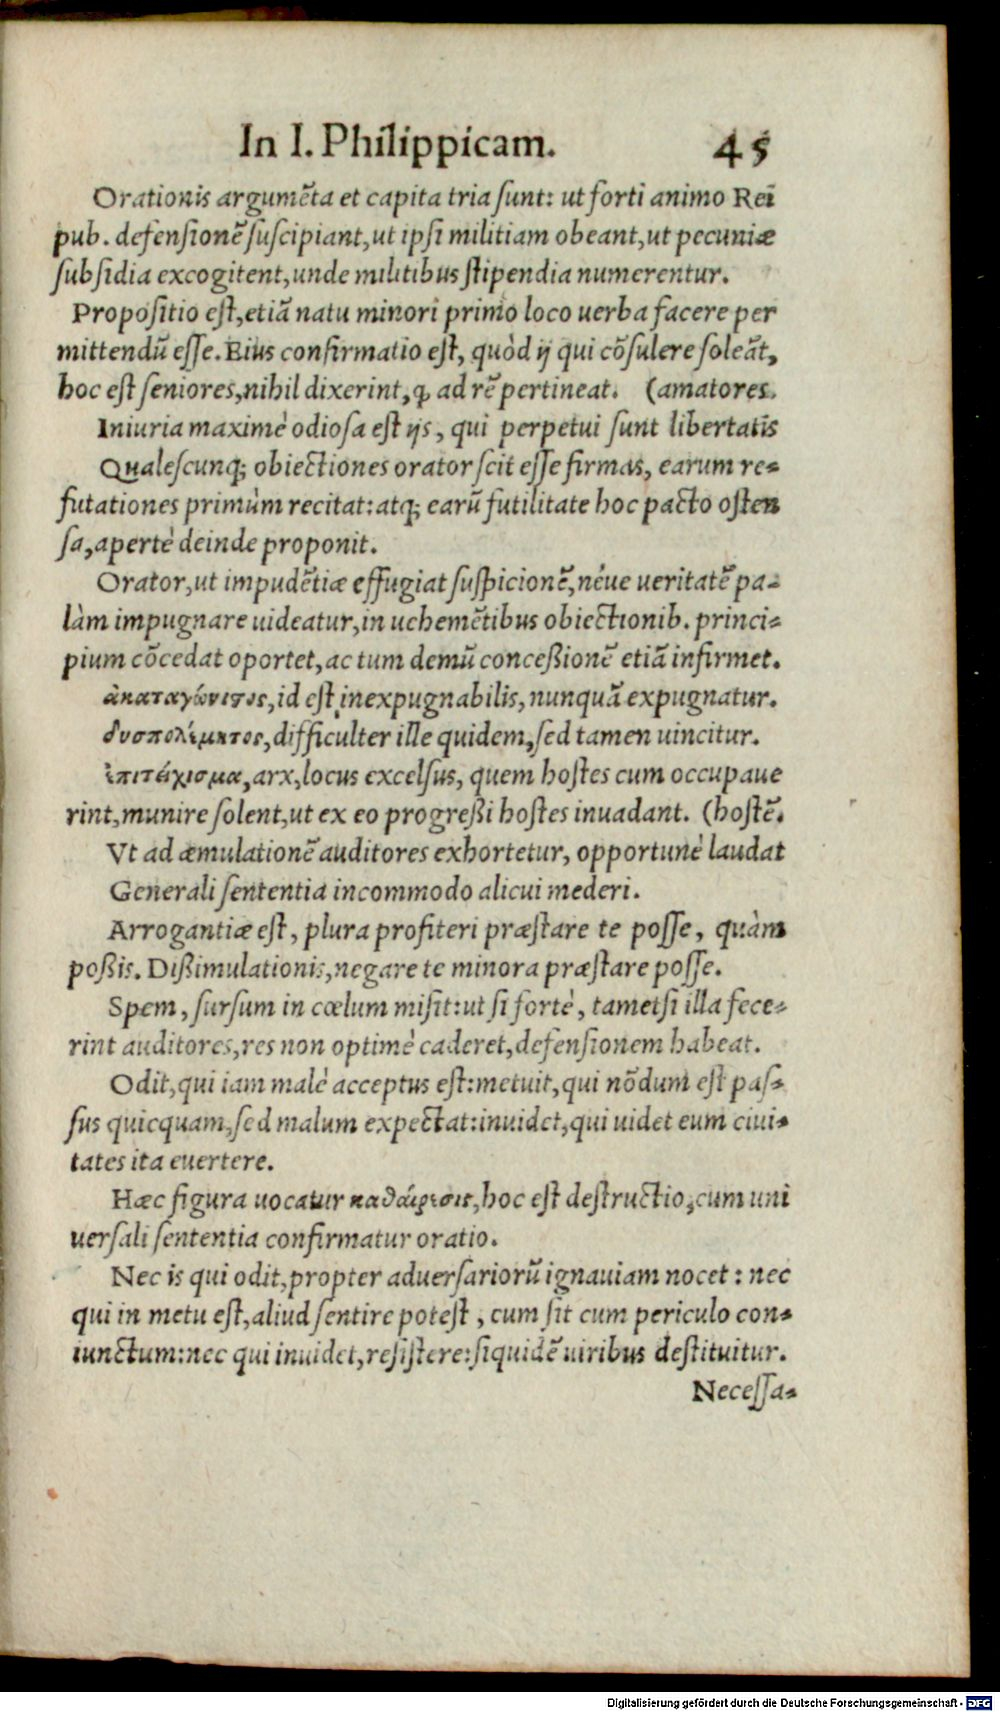 In I. Philippicam. 45
Orationis argumẽta et capita tria sunt: ut forti animo Rei
pub. defensionẽ suscipiant, ut ipsi militiam obeant, ut pecuniæ
subsidia excogitent, unde militibus stipendia numerentur.
Propositio est, etiã natu minori primo loco uerba facere per
mittendũ esse. Eius confirmatio est, quòd ij qui cõsulere soleãt,
hoc est seniores, nihil dixerint, ꝙ ad rẽ pertineat. (amatores.
Iniuria maximè odiosa est ijs, qui perpetui sunt libertatis
Qualescunq; obiectiones orator scit esse firmas, earum re-
futationes primùm recitat: atq; earũ futilitate hoc pacto osten
sa, apertè deinde proponit.
Orator, ut impudẽtiæ effugiat suspicionẽ, néue ueritatẽ pa-
làm impugnare uideatur, in uehemẽtibus obiectionib. princi-
pium cõcedat oportet, ac tum demũ conceßionẽ etiã infirmet.
ἀκαταγώνιστος, id est inexpugnabilis, nunquã expugnatur.
δυσπολέμητος, difficulter ille quidem, sed tamen uincitur.
ἐπιτείχισμα, arx, locus excelsus, quem hostes cum occupaue
rint, munire solent, ut ex eo progreßi hostes inuadant. (hostẽ.
Vt ad æmulationẽ auditores exhortetur, opportunè laudat
Generali sententia incommodo alicui mederi.
Arrogantiæ est, plura profiteri præstare te posse, quàm
poßis. Dißimulationis, negare te minora præstare posse.
Spem, sursum in cœlum misit: ut si fortè, tametsi illa fece-
rint auditores, res non optimè caderet, defensionem habeat.
Odit, qui iam malè acceptus est: metuit, qui nõdum est pas-
sus quicquam, sed malum expectat: inuidet, qui uidet eum ciui-
tates ita euertere.
Hæc figura uocatur καθαίρεσις, hoc est destructio, cum uni
uersali sententia confirmatur oratio.
Nec is qui odit, propter aduersariorũ ignauiam nocet: nec
qui in metu est, aliud sentire potest, cum sit cum periculo con-
iunctum: nec qui inuidet, resistere: siquidẽ uiribus destituitur.
Necessa-
Digitalisierung gefördert durch die Deutsche Forschungsgemeinschaft - DFG